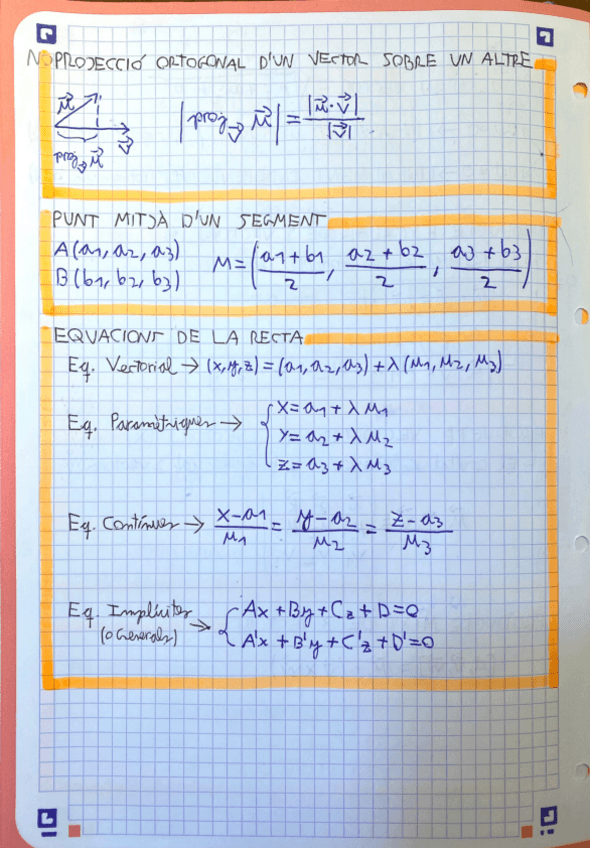 NO PROJECCIÓ ORTOGONAL D'UN VECTOR SOBRE UN ALTRE
u⃗
v⃗
proj_v⃗ u⃗
|proj_v⃗ u⃗| = |u⃗·v⃗| / |v⃗|
PUNT MITJÀ D'UN SEGMENT
A(a1, a2, a3)
B(b1, b2, b3)
M = ((a1 + b1)/2, (a2 + b2)/2, (a3 + b3)/2)
EQUACIONS DE LA RECTA
Eq. Vectorial → (x, y, z) = (a1, a2, a3) + λ (u1, u2, u3)
Eq. Paramètriques →
x = a1 + λ u1
y = a2 + λ u2
z = a3 + λ u3
Eq. Contínues → (x - a1)/u1 = (y - a2)/u2 = (z - a3)/u3
Eq. Implícites
(o Generals) →
Ax + By + Cz + D = 0
A'x + B'y + C'z + D' = 0